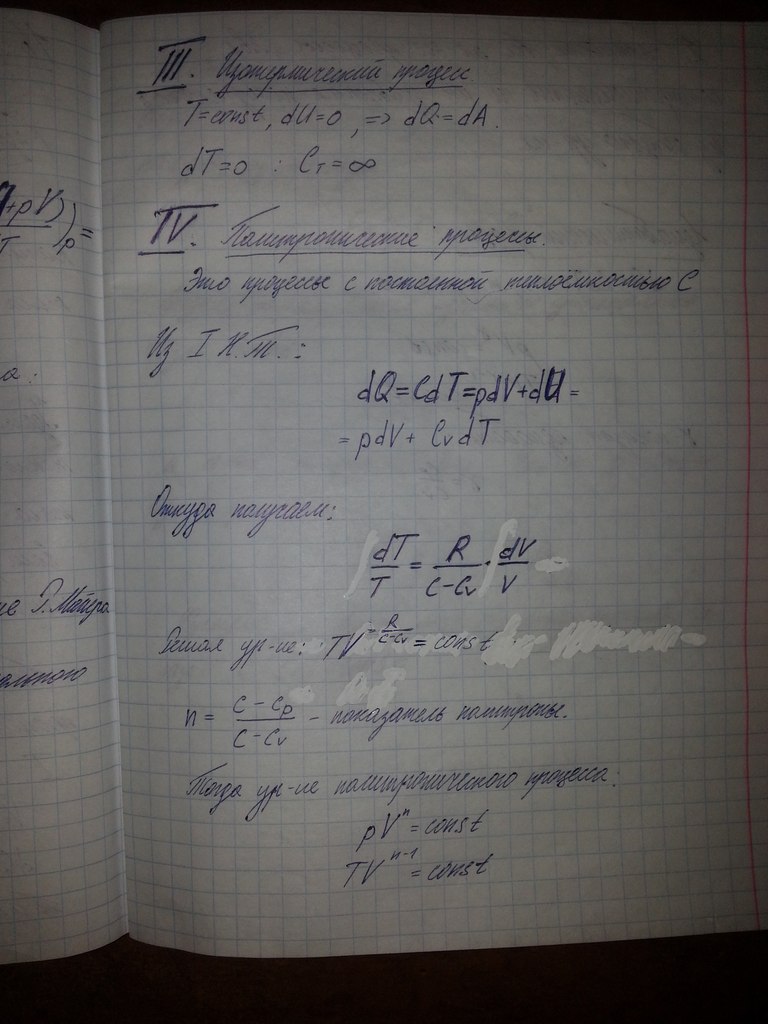 III. Изотермический процесс
T=const, dU=0, => dQ=dA.
dT=0 : C_T=∞
+pV)
T )p=
IV. Политропические процессы.
Это процессы с постоянной теплоёмкостью C
Из I Н.Т.:
а:
dQ=CdT=pdV+dU=
=pdV+ C_v dT
Откуда получаем:
∫ dT/T = R/(C-C_v) ∫ dV/V
ие Р. Майера
Решая ур-ие: TV^(-R/(C-C_v)) = const
ального
n = (C-C_p)/(C-C_v) - показатель политропы.
Тогда ур-ие политропического процесса:
pV^n=const
TV^(n-1)=const